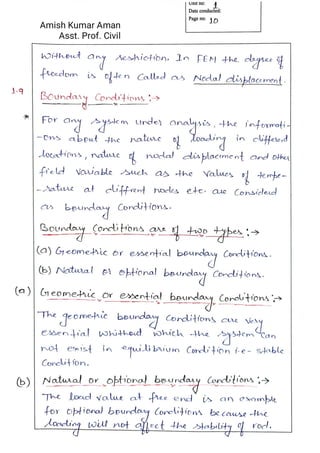 Unit no. 1
Date conducted:
Page no. 10
Amish Kumar Aman
Asst. Prof. Civil
without any restriction. In FEM the degree of
freedom is often called as Nodal displacement.
1.9 Boundary Conditions :→
* For any system under analysis, the informati-
-ons about the nature of loading in different
locations, nature of nodal displacement and other
field variable such as the values of tempe-
-rature at different nodes etc. are considered
as boundary Conditions.
Boundary Conditions are of two types :→
(a) Geometric or essential boundary Conditions.
(b) Natural or optional boundary Conditions.
(a) Geometric or essential boundary Conditions :→
The geometric boundary Conditions are very
essential without which the system can
not exist in equilibrium Condition i.e. stable
Condition.
(b) Natural or optional boundary Conditions :→
The load value at free end is an example
for optional boundary Conditions because the
loading will not affect the stability of rod.